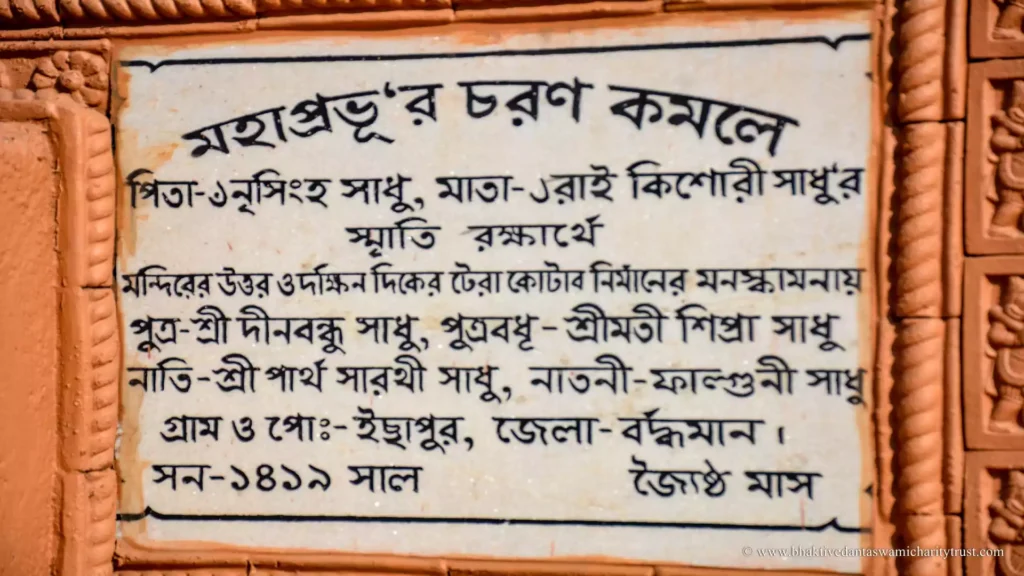 মহাপ্রভূ'র চরণ কমলে
পিতা-৺নৃসিংহ সাধু, মাতা-৺রাই কিশোরী সাধু'র
স্মৃতি রক্ষার্থে
মন্দিরের উত্তর ও দক্ষিন দিকের টেরা কোটার নির্মানের মনস্কামনায়
পুত্র-শ্রী দীনবন্ধু সাধু, পুত্রবধূ-শ্রীমতী শিপ্রা সাধু
নাতি-শ্রী পার্থ সারথী সাধু, নাতনী-ফাল্গুনী সাধু
গ্রাম ও পোঃ-ইছাপুর, জেলা-বর্দ্ধমান।
সন-১৪১৯ সাল জ্যৈষ্ঠ মাস
© www.bhaktivedantaswamicharitytrust.com